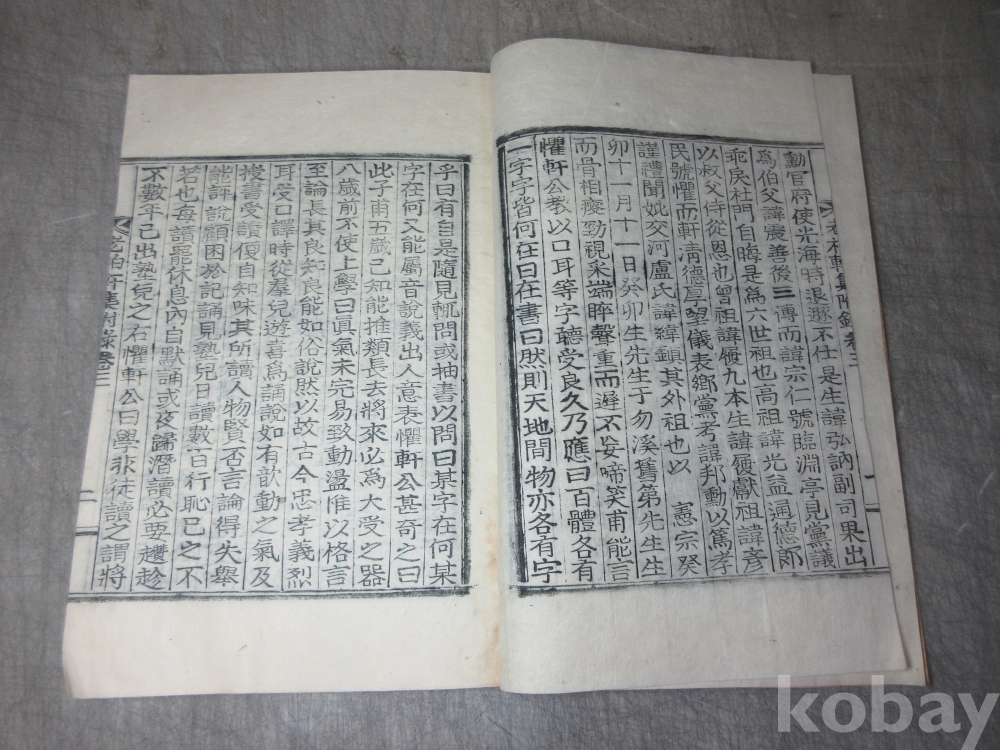 勳官府使光海時退遯不仕是生諱弘訥副司果出
爲伯父諱震善後三傳而諱宗仁號臨淵亭見黨議
乖戾杜門自晦是爲六世祖也高祖諱光益通德郎
以叔父侍從恩也曾祖諱履九本生諱履獻祖諱彦
民號懼而軒淸德厚望儀表鄕黨考諱邦勳以篤孝
謹禮聞妣交河盧氏諱緯 其外祖也以 憲宗癸
卯十一月十一日癸卯生先生于勿溪舊第先生生
而骨相瘦勁視釆端睟聲重而遲不妄啼笑甫能言
懼軒公敎以口耳等字聽受良久乃應曰百體各有
一字字皆何在曰在書曰然則天地間物亦各有字
乎曰有自是隨見輒問或抽書以問曰某字在何某
字在何又能屬音說義出人意表懼軒公甚奇之曰
此子甫五歲已知能推類長去將來必爲大受之器
八歲前不使上學曰眞氣未完易致動盪惟以格言
至論長其良知良能如俗說然以故古今忠孝義烈
耳受口譯時從羣兒遊喜爲誦說如有歆動之氣及
挾書受讀復自知味其所謂人物賢否言論得失擧
能評說顧困於記誦見塾兒日讀數百行恥己之不
若也每讀罷休息內自默誦或夜歸潛讀必要趱趁
不數年已出塾兒之右懼軒公曰學莍徒讀之謂將
軒集附錄卷三
二